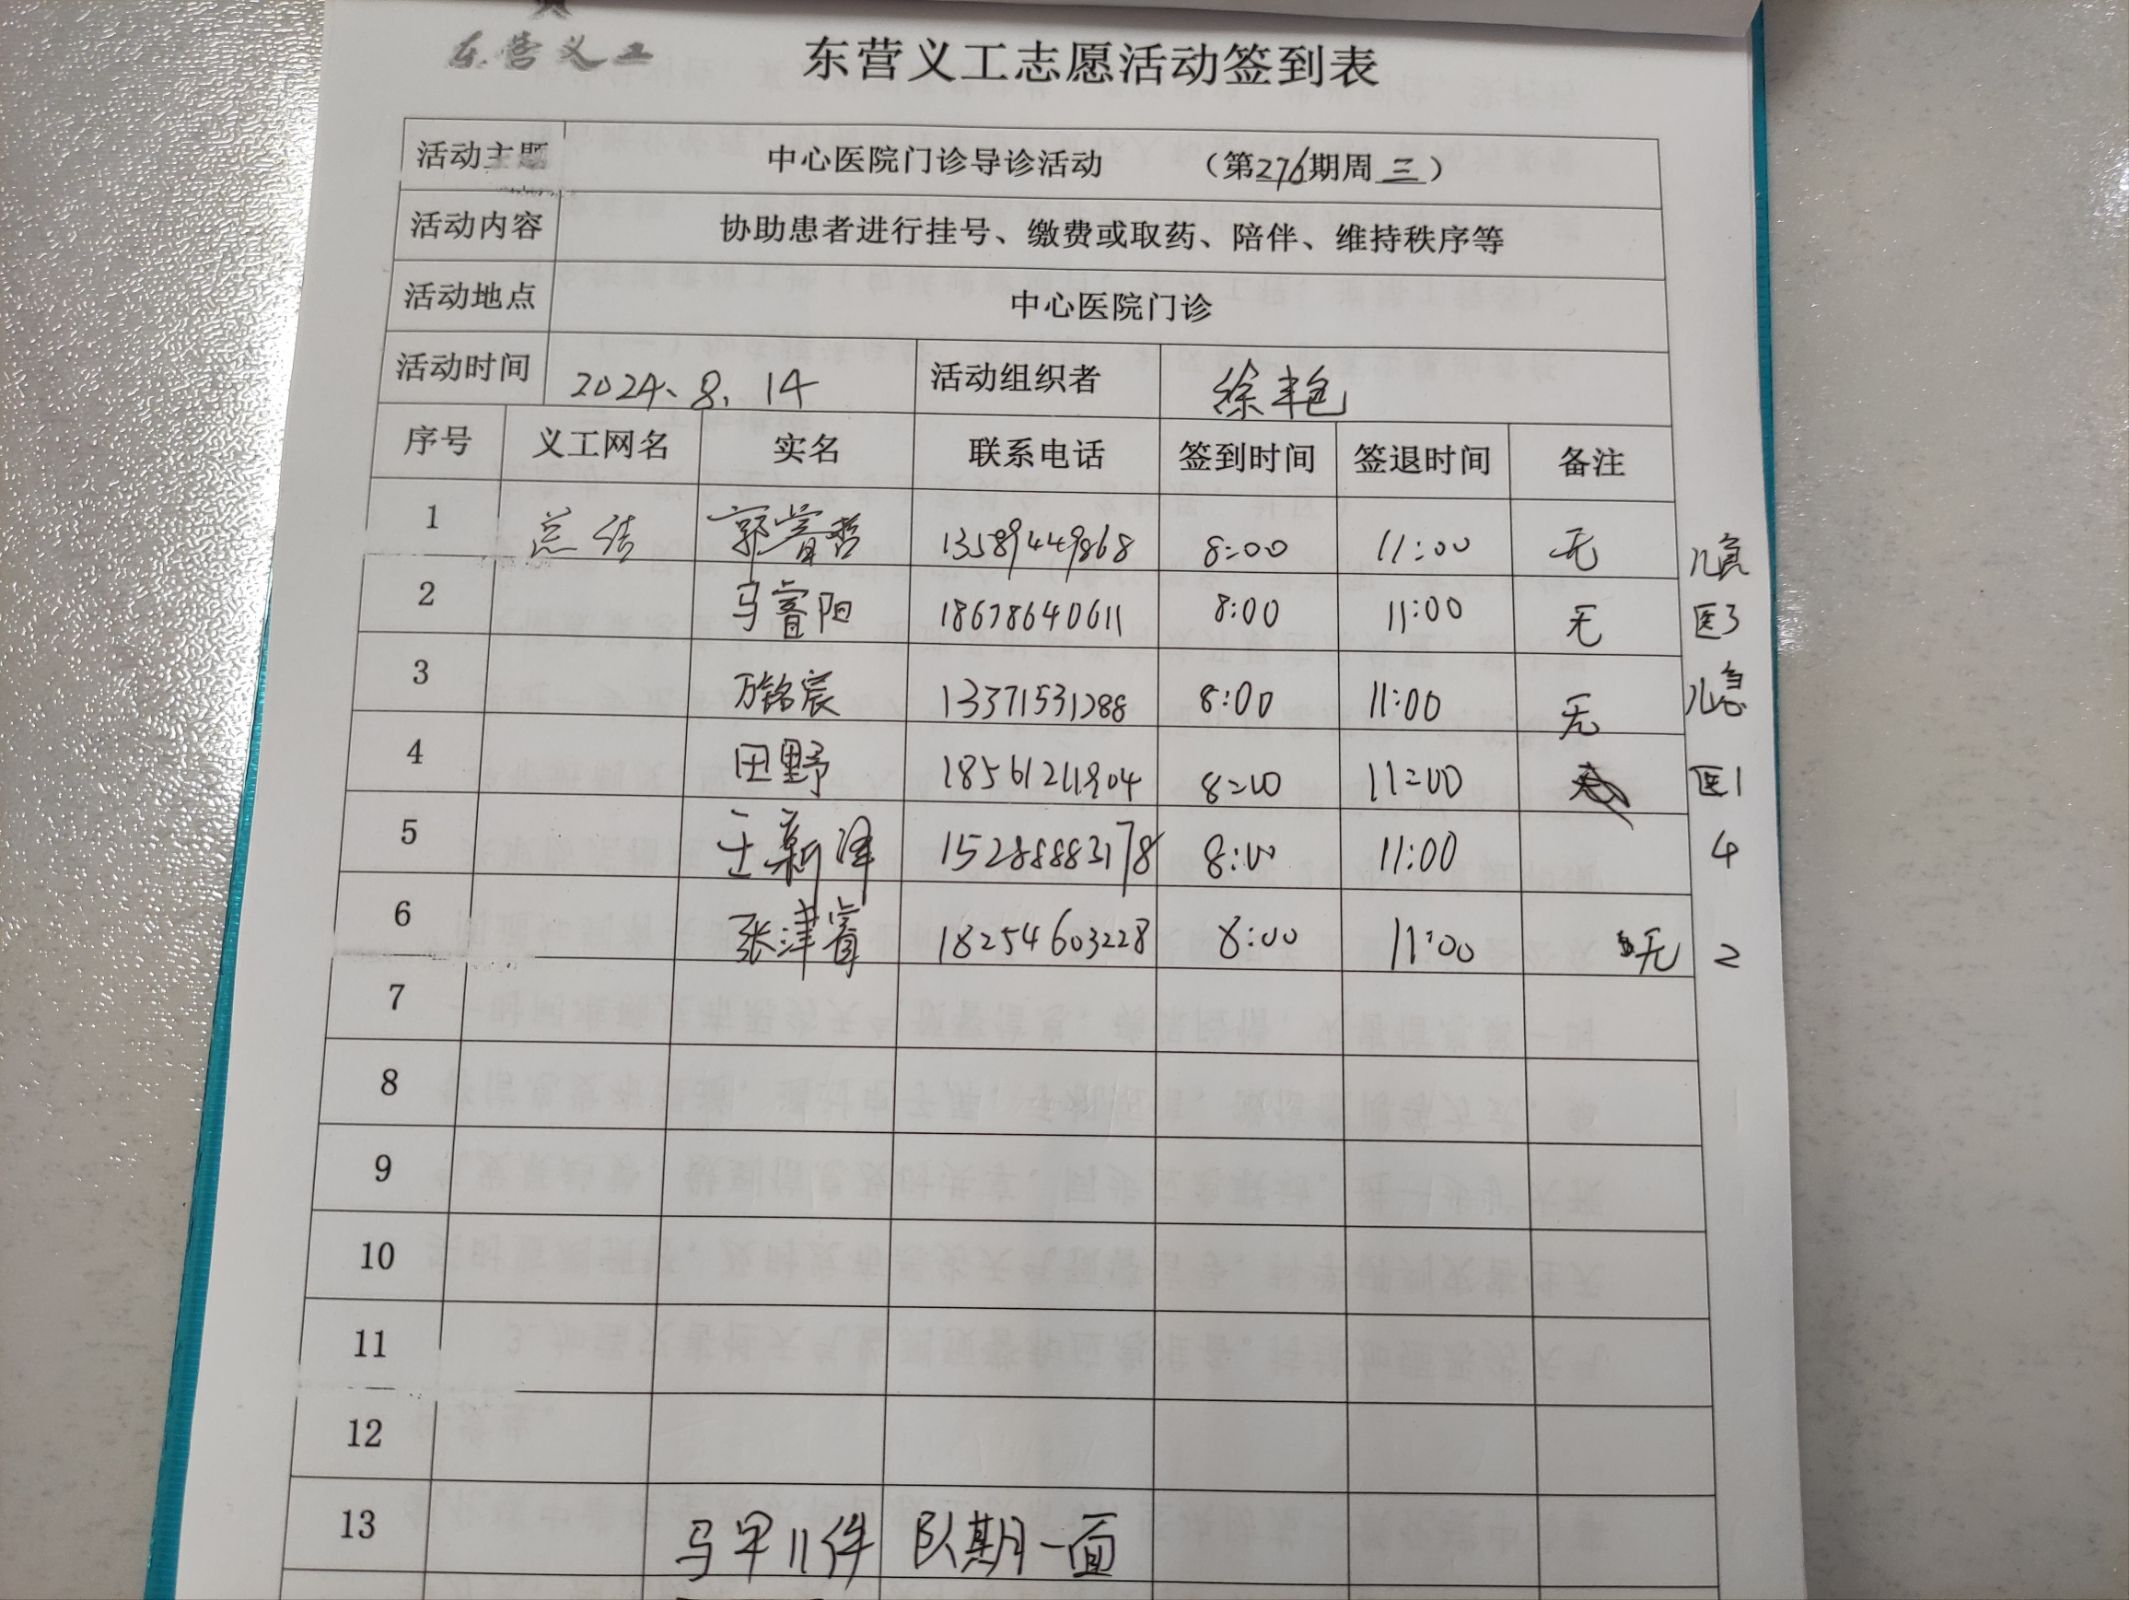 东营义工
东营义工志愿活动签到表
活动主题 中心医院门诊导诊活动 （第276期周三）
活动内容 协助患者进行挂号、缴费或取药、陪伴、维持秩序等
活动地点 中心医院门诊
活动时间 2024、8、14 活动组织者 徐丰艳
序号 义工网名 实名 联系电话 签到时间 签退时间 备注
1 总结 郭睿哲 13589449868 8:00 11:00 无 儿急
2 马睿阳 18678640611 8:00 11:00 无 医3
3 万铭宸 13371531288 8:00 11:00 无 儿急
4 田野 18561211904 8:00 11:00 医1
5 王新泽 15288883178 8:00 11:00 4
6 张津睿 18254603228 8:00 11:00 无 2
7
8
9
10
11
12
13 马甲11件 队期一面